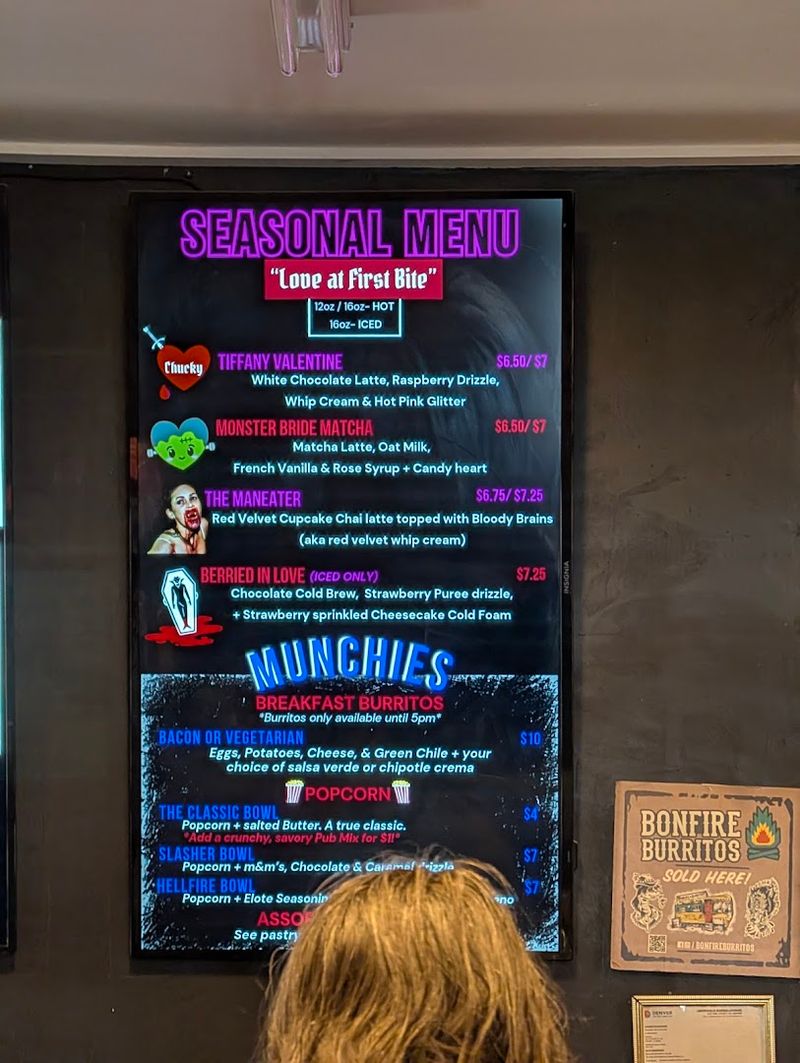 SEASONAL MENU
"Love at First Bite"
12oz / 16oz- HOT
16oz- ICED
Chucky
TIFFANY VALENTINE $6.50/ $7
White Chocolate Latte, Raspberry Drizzle,
Whip Cream & Hot Pink Glitter
MONSTER BRIDE MATCHA $6.50/ $7
Matcha Latte, Oat Milk,
French Vanilla & Rose Syrup + Candy heart
THE MANEATER $6.75/ $7.25
Red Velvet Cupcake Chai latte topped with Bloody Brains
(aka red velvet whip cream)
BERRIED IN LOVE (ICED ONLY) $7.25
Chocolate Cold Brew, Strawberry Puree drizzle,
+ Strawberry sprinkled Cheesecake Cold Foam
INSIGNIA
MUNCHIES
BREAKFAST BURRITOS
*Burritos only available until 5pm*
BACON OR VEGETARIAN $10
Eggs, Potatoes, Cheese, & Green Chile + your
choice of salsa verde or chipotle crema
POPCORN
THE CLASSIC BOWL $4
Popcorn + salted Butter. A true classic.
*Add a crunchy, savory Pub Mix for $1!*
SLASHER BOWL $7
Popcorn + m&m's, Chocolate & Caramel drizzle
HELLFIRE BOWL $7
Popcorn + Elote
See pastry
BONFIRE
BURRITOS
SOLD HERE!
/ BONFIREBURRITOS
DENVER